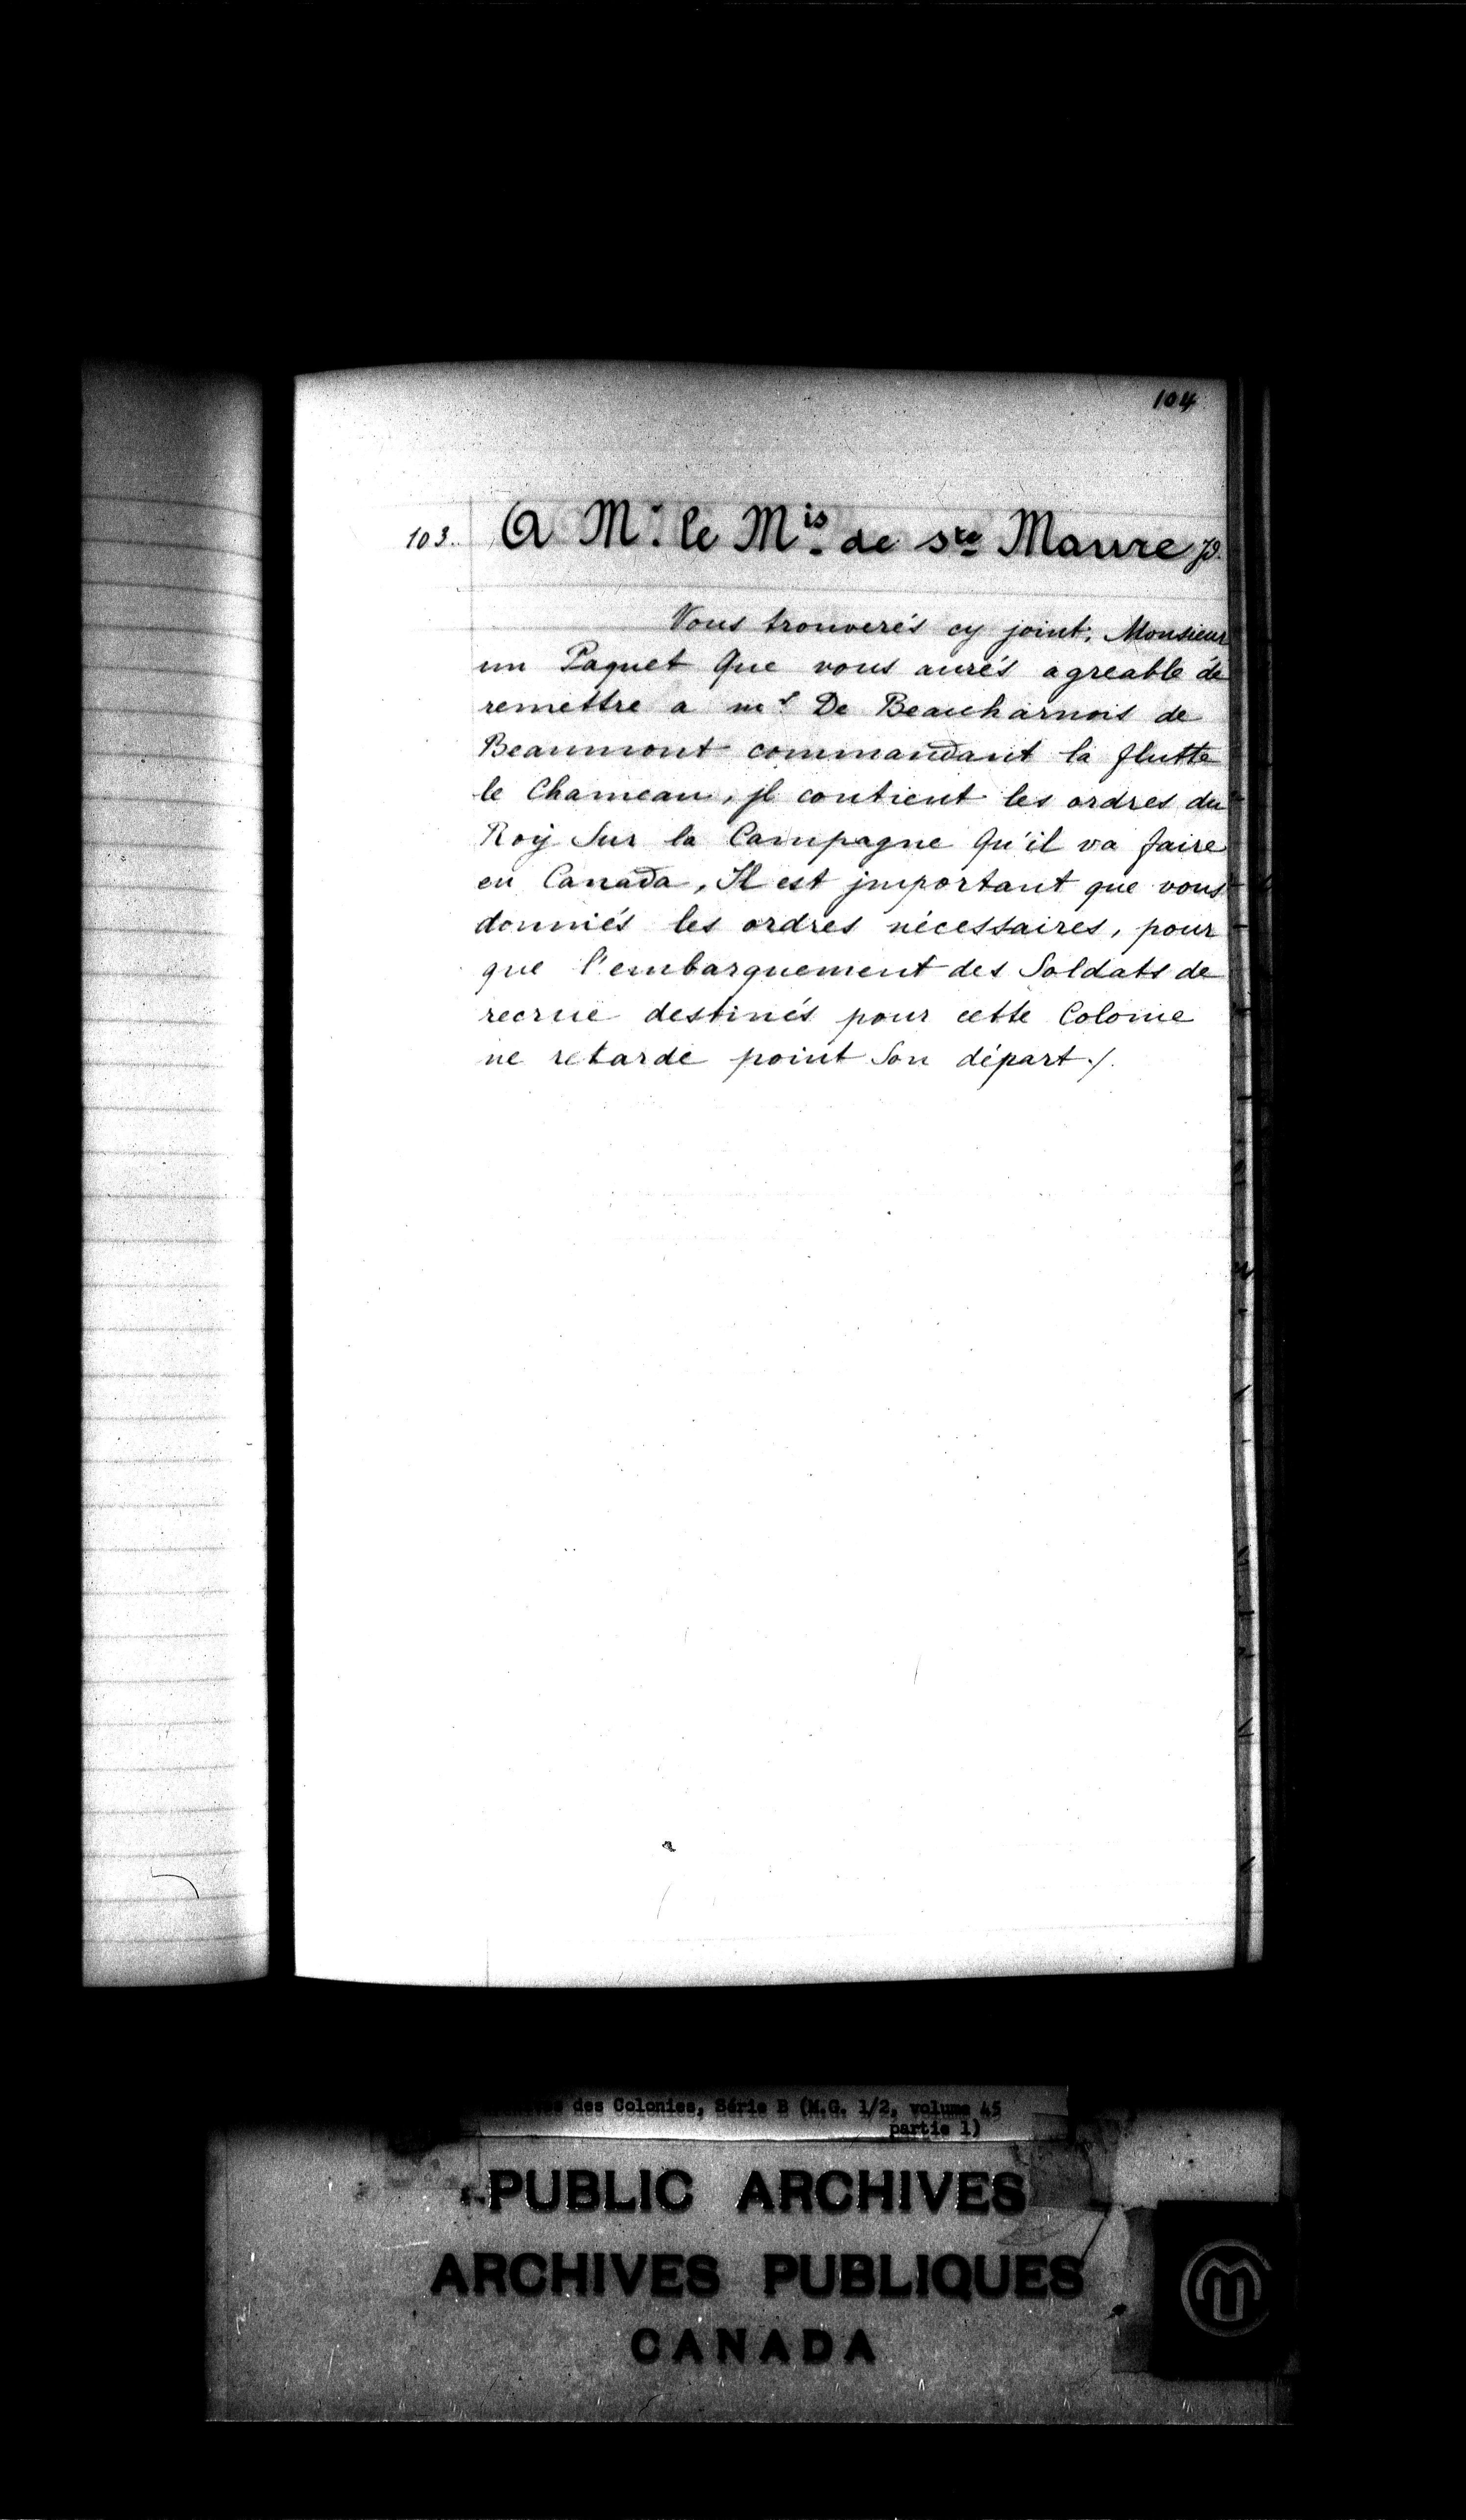 104
103. A Mr. le Mis de ste Maure
Vous trouverés cy joint, Monsieur
un Paquet Que vous aurés agreable de
remettre a mr De Beauharnois de
Beaumont commandant la flutte
le Chameau, jl contient les ordres du
Roy Sur la Campagne Qu'il va faire
en Canada, Il est jmportant que vous
donniés les ordres nécessaires, pour
que l'embarquement des Soldats de
recrue destinés pour cette Colonie
ne retarde point Son départ ./.
des Colonies, Série B (M.G. 1/2, volume 45
partie 1)
PUBLIC ARCHIVES
ARCHIVES PUBLIQUES
CANADA